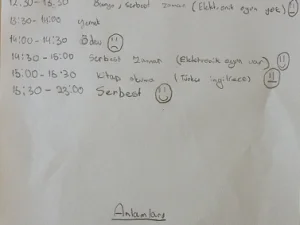 12:30 - 13:30 Banyo, serbest zaman (Elektronik eşya yok)
13:30 - 14:00 Yemek
14:00 - 14:30 Ödev
14:30 - 15:00 Serbest zaman (Elektronik eşya var)
15:00 - 15:30 Kitap okuma (Türkçe ingilizce)
15:30 - 23:00 Serbest
Anlamları